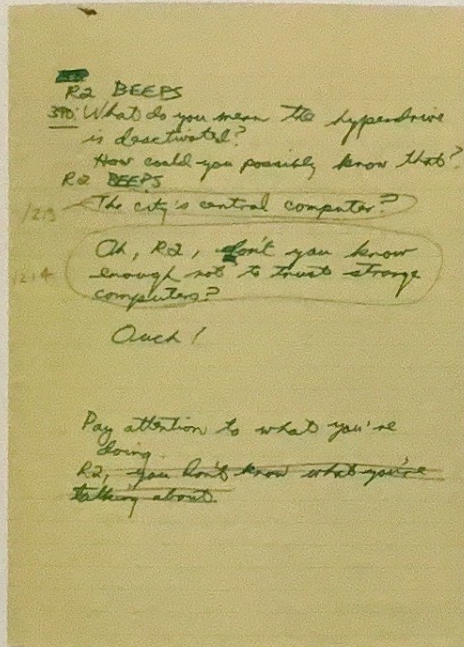 R2 BEEPS
3PO: What do you mean the hyperdrive
is deactivated?
How could you possibly know that?
R2 BEEPS
The city's central computer?
Oh, R2, don't you know
enough not to trust strange
computers?
Ouch!
Pay attention to what you're
doing.
R2, you don't know what you're
talking about.